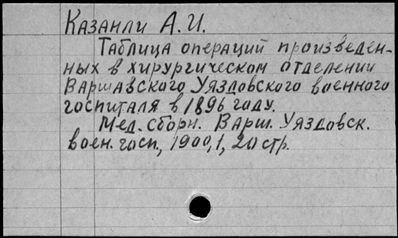 Казанли А.И.
Таблица операций произведен-
ных в хирургическом отделении
Варшавского Уяздовского военного
госпиталя в 1896 году.
Мед. сборн. Варш. Уяздовск.
воен. госп., 1900, 1, 20 стр.